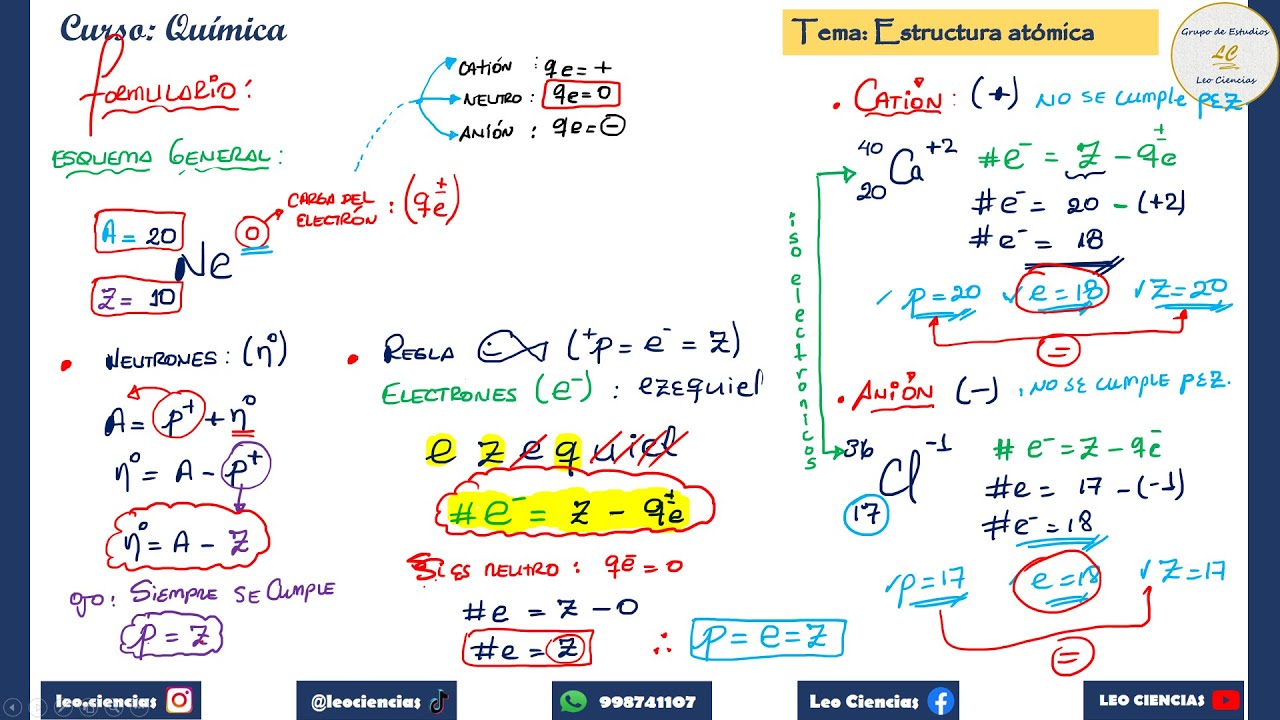 Curso: Química
Tema: Estructura atómica
Grupo de Estudios
LC
Leo Ciencias
FORMULARIO:
CATIÓN : qe = +
NEUTRO : qe = 0
ANIÓN : qe = -
ESQUEMA GENERAL:
CARGA DEL
ELECTRÓN : (qe±)
A = 20
Ne 0
Z = 10
• NEUTRONES: (n°)
A = p⁺ + n°
n° = A - p⁺
n° = A - Z
Ojo: SIEMPRE SE CUMPLE
p = Z
• REGLA (⁺p = e⁻ = Z)
ELECTRONES (e⁻) : ezequiel
e z e q u i e l
#e⁻ = Z - qe±
Si ES NEUTRO: qe⁻ = 0
#e = Z - 0
#e = Z
∴ p = e = Z
iso electronicos
• CATIÓN: (+) NO SE CUMPLE PEZ
40
Ca +2
20
#e⁻ = Z - qe±
#e⁻ = 20 - (+2)
#e⁻ = 18
✓ p = 20 ✓ e = 18 ✓ Z = 20
=
• ANIÓN (-) , NO SE CUMPLE PEZ.
36
Cl -1
17
# e⁻ = Z - qe⁻
#e = 17 - (-1)
#e⁻ = 18
✓ p = 17 ✓ e = 18 ✓ Z = 17
=
leo.ciencias
@leociencias
998741107
Leo Ciencias
LEO CIENCIAS